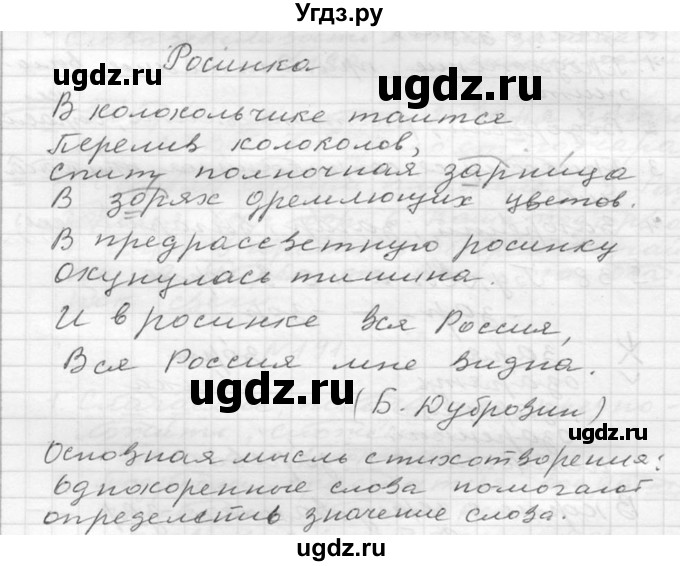 Угдз.ру
Росинка
ugdz.ru
ugdz.ru
В колокольчике таитсе
Перелив колоколов,
Спит полночная зарница
В зорях дремлющих цветов.
ugdz.ru
В предрассветную росинку
Окунулась тишина.
И в росинке вся Россия,
Вся Россия мне видна.
ugdz.ru
(Б. Дубровин)
ugdz.ru
Основная мысль стихотворения:
Однокоренные слова помогают
определетив значение слова.
ugdz.ru
ugdz.ru